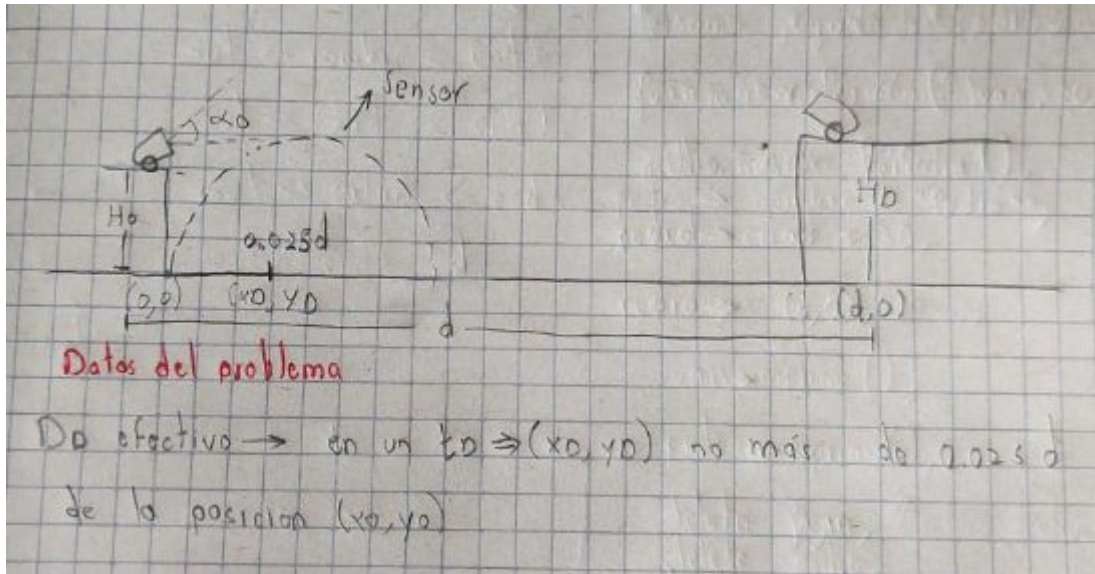 Sensor
αo
Ho
HD
0.025d
(0,0) (xD, yD (d,0)
d
Datos del problema
Do efectivo → en un tD ⇒ (xD, yD) no más de 0.025 d
de la posición (xo, yo)